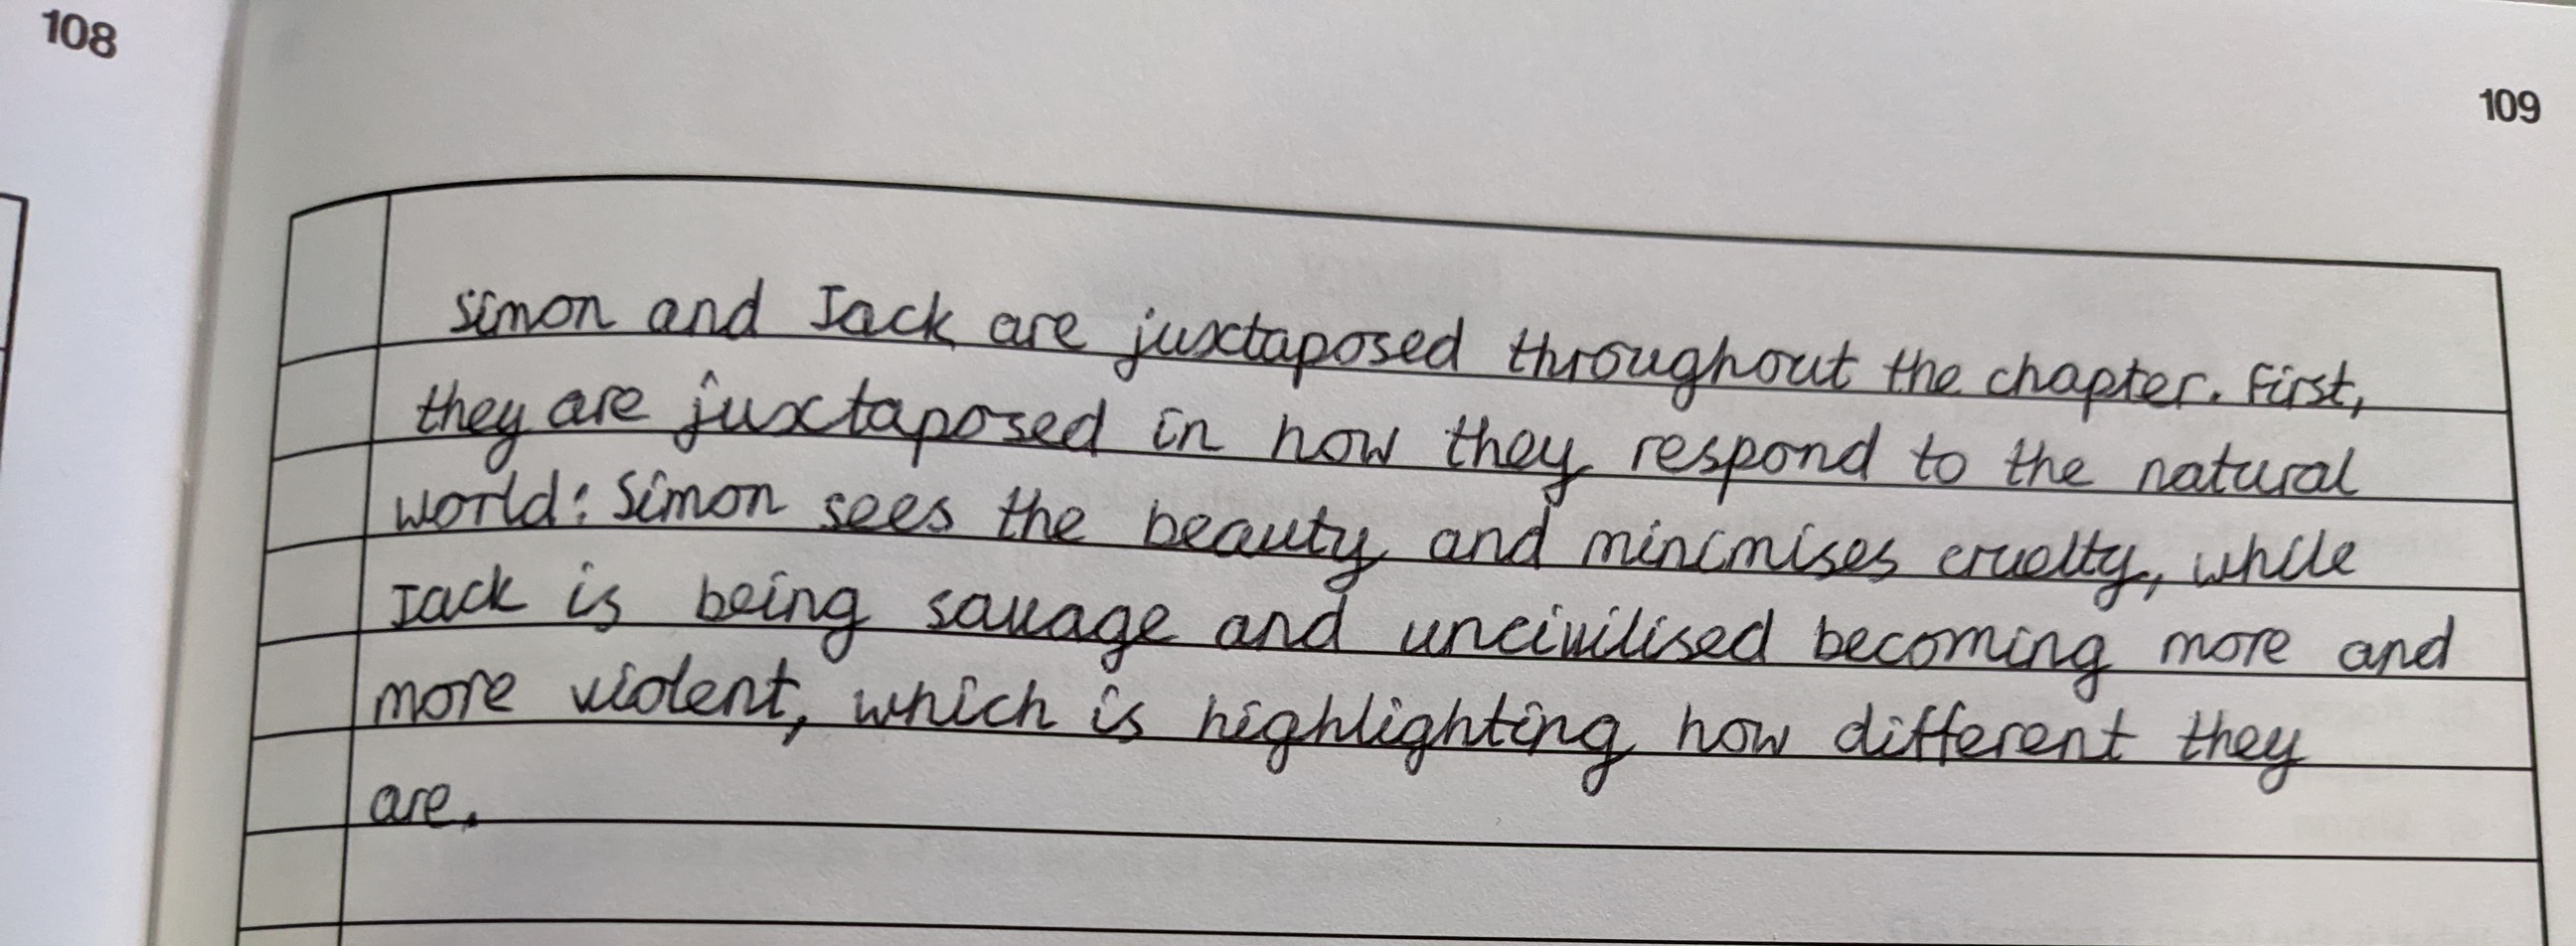 108
109
Simon and Jack are juxtaposed throughout the chapter. First,
they are juxtaposed in how they respond to the natural
world: Simon sees the beauty and minimises cruelty, while
Jack is being savage and uncivilised becoming more and
more violent, which is highlighting how different they
are.